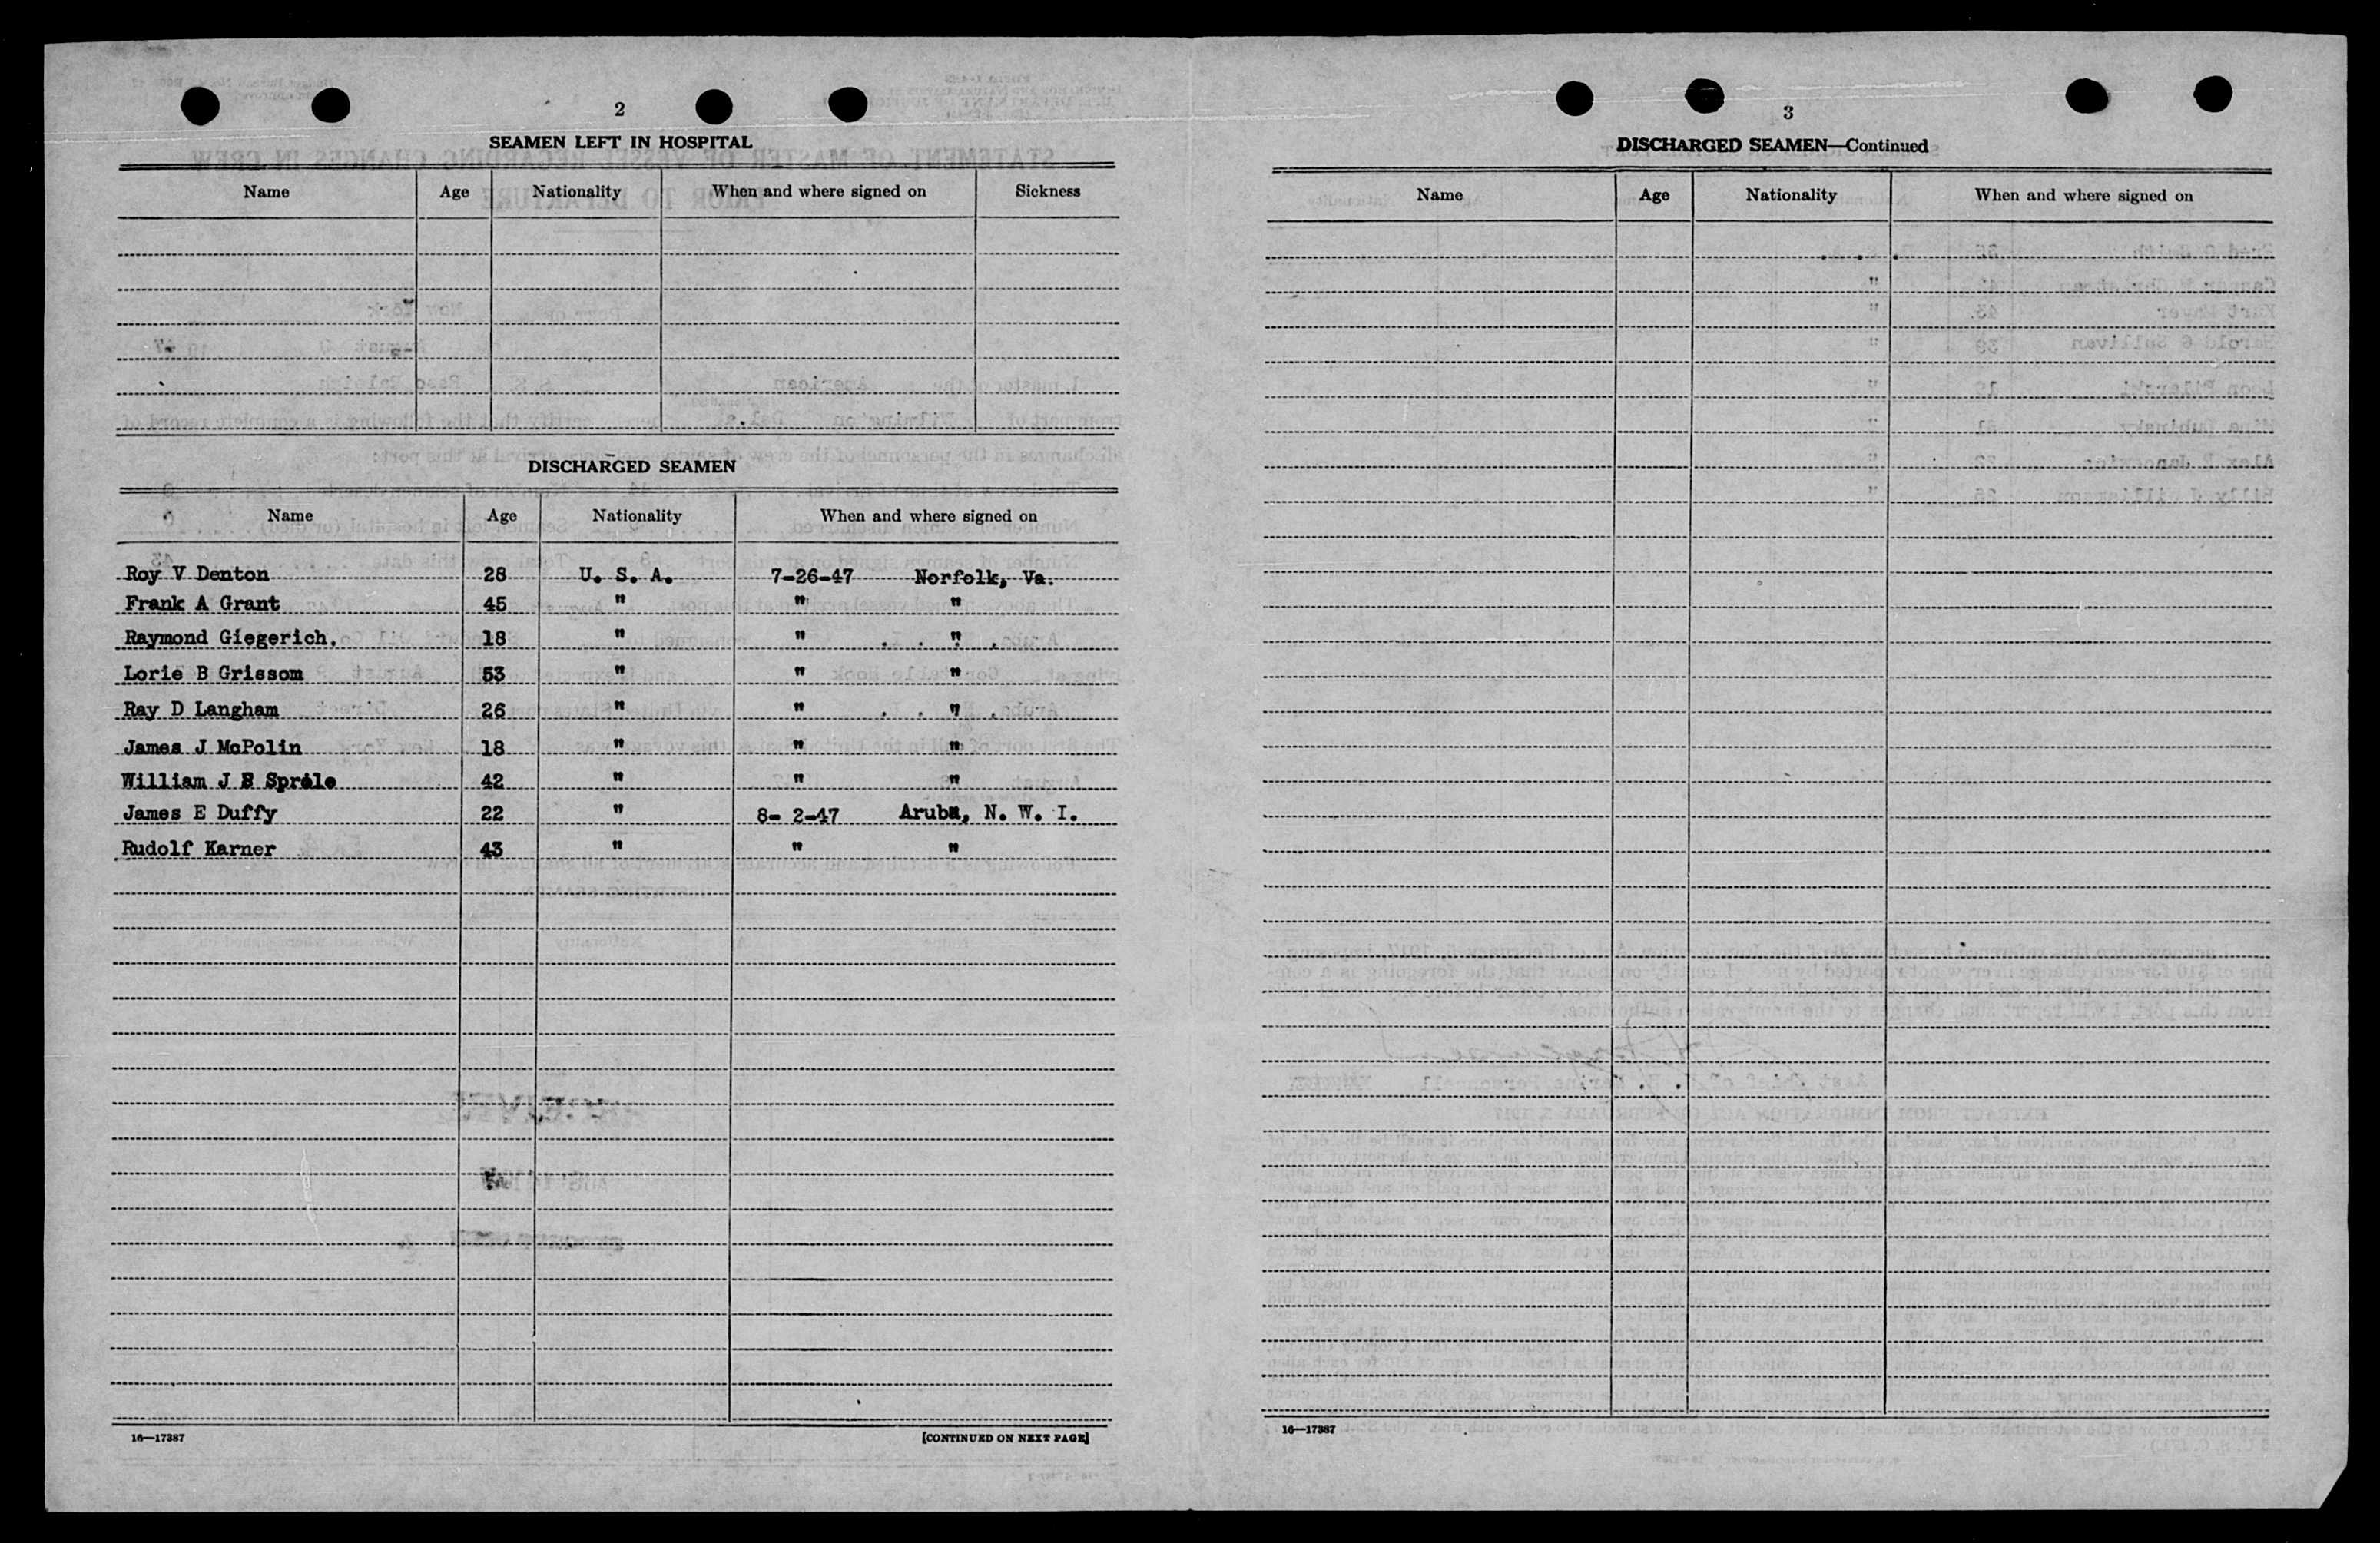 2
SEAMEN LEFT IN HOSPITAL
Name Age Nationality When and where signed on Sickness
DISCHARGED SEAMEN
Name Age Nationality When and where signed on
Roy V Denton 28 U. S. A. 7-26-47 Norfolk, Va.
Frank A Grant 45 " " "
Raymond Giegerich. 18 " " "
Lorie B Grissom 53 " " "
Ray D Langham 26 " " "
James J McPolin 18 " " "
William J B Sprole 42 " " "
James E Duffy 22 " 8- 2-47 Aruba, N. W. I.
Rudolf Karner 43 " " "
16—17387 [CONTINUED ON NEXT PAGE]
3
DISCHARGED SEAMEN—Continued
Name Age Nationality When and where signed on
16—17387